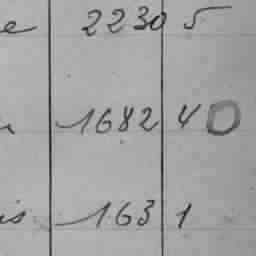 e 2230 5
1682 40
is 163 1